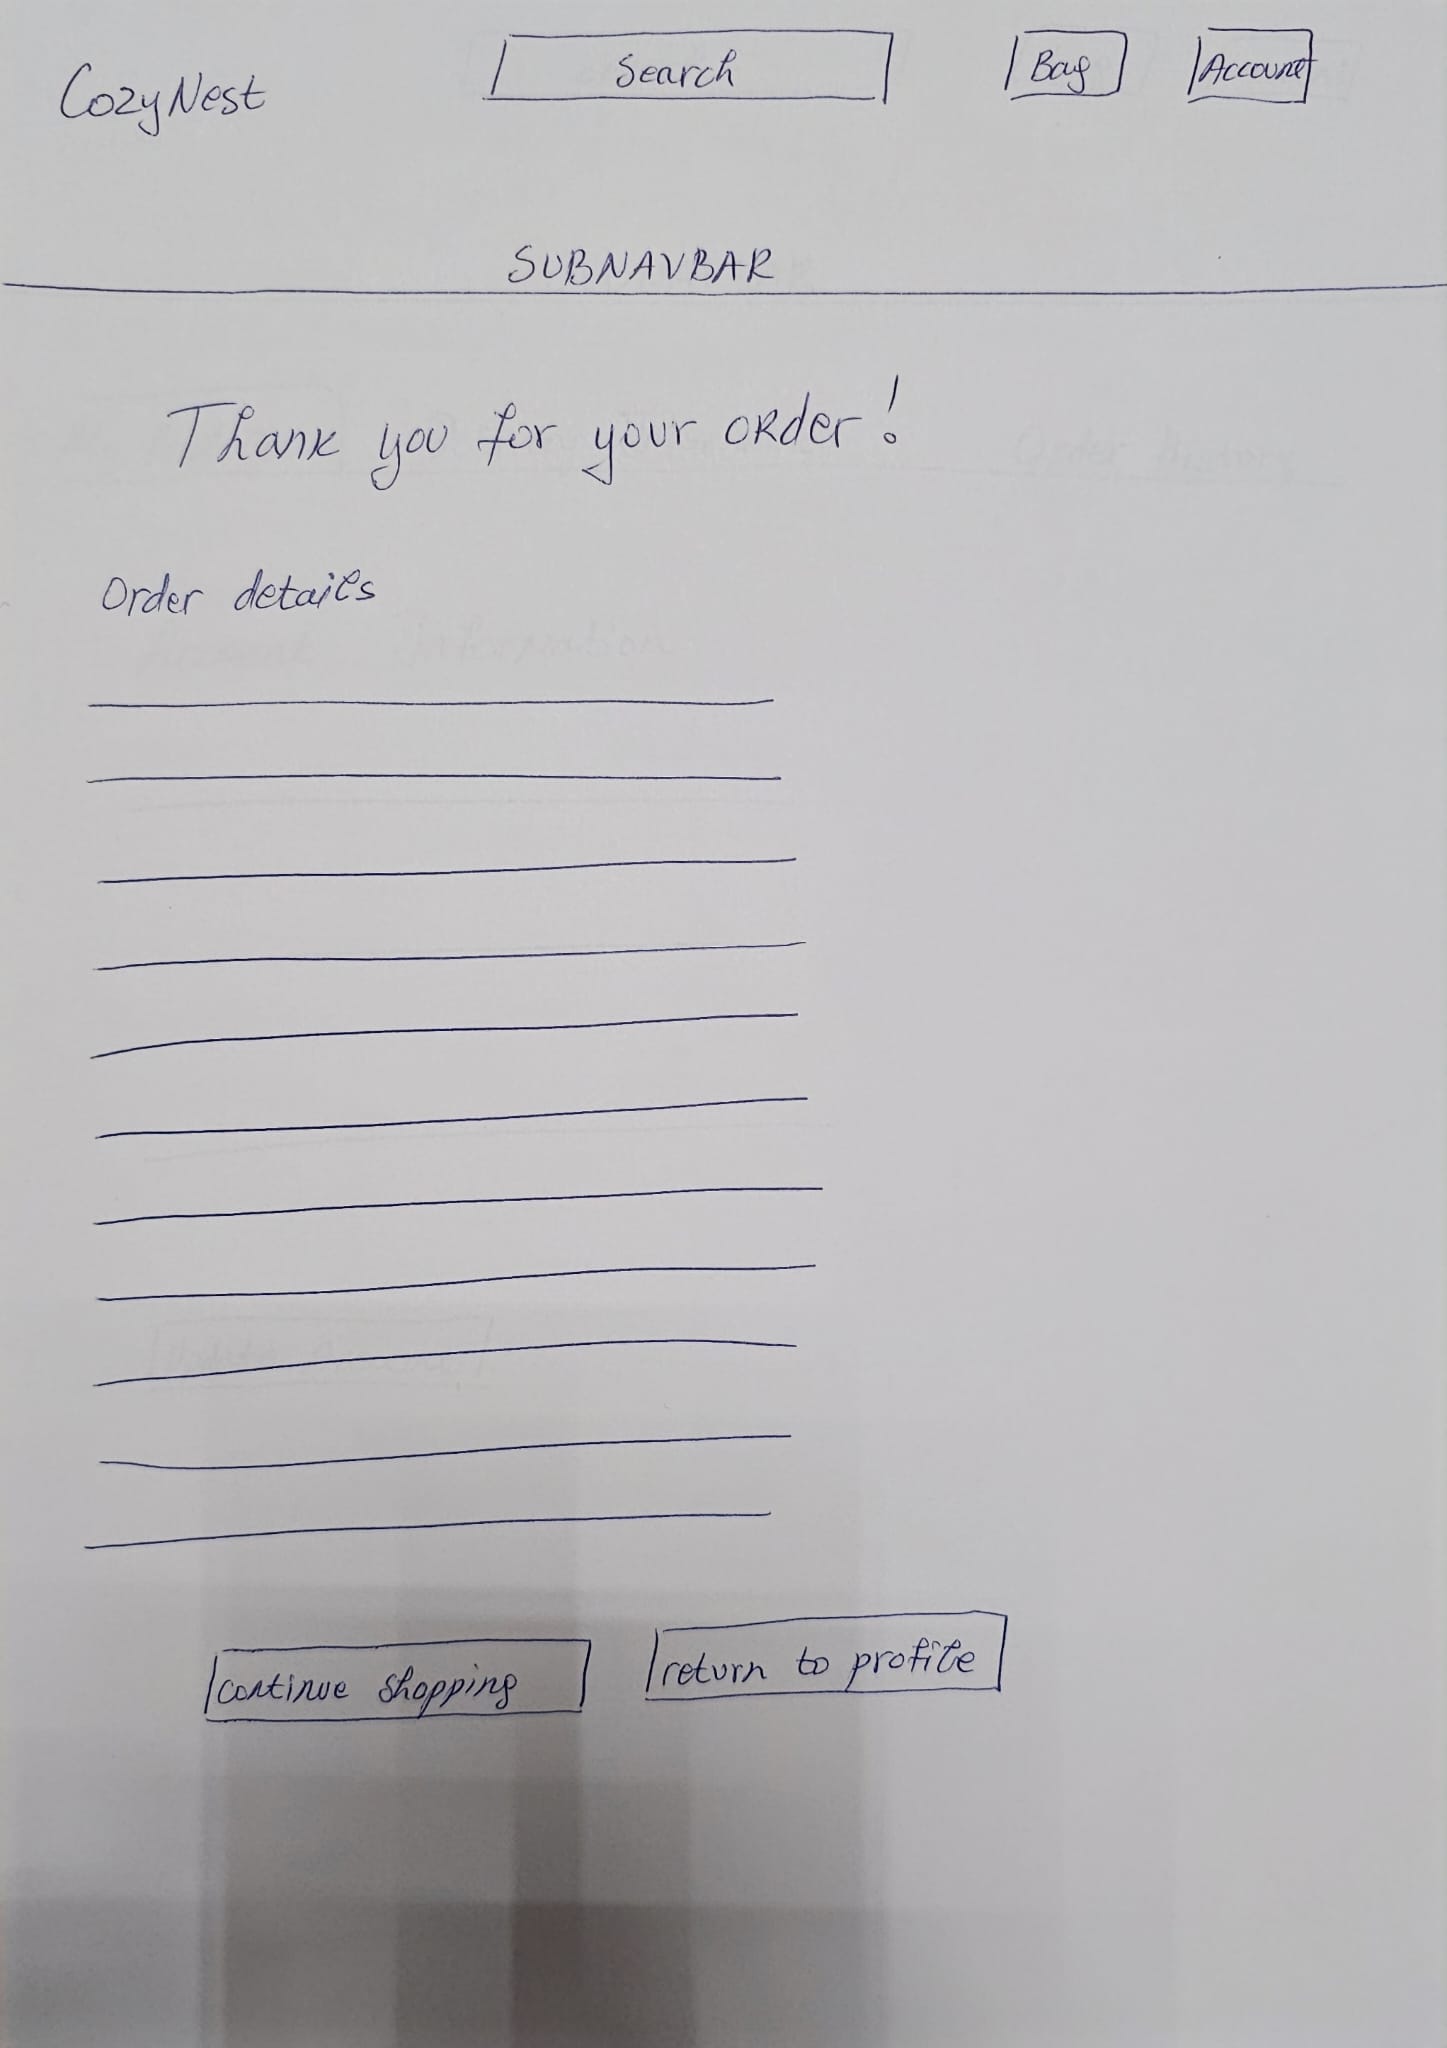 CozyNest
Search
Bag
Account
SUBNAVBAR
Thank you for your order!
Order details
continue shopping
return to profile